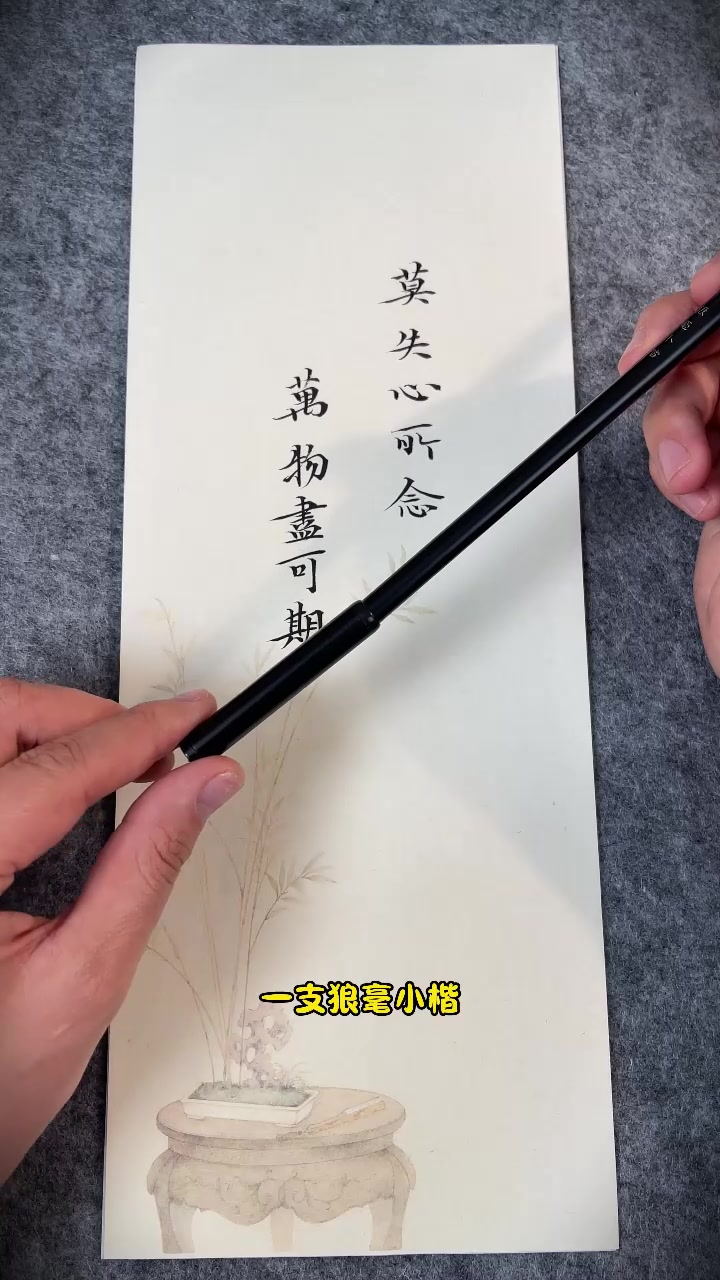 莫失心所念
萬物盡可期
一支狼毫小楷